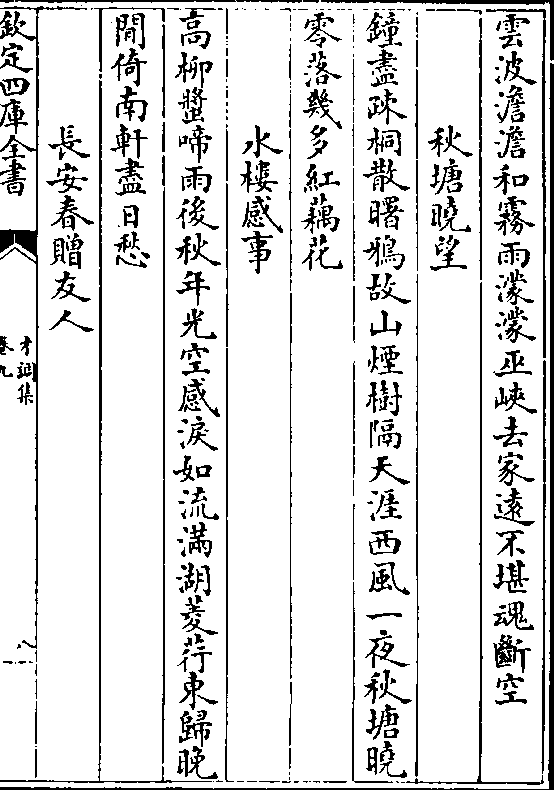 雲波澹澹和霧雨濛濛巫峽去家遠不堪魂斷空
秋塘曉望
鐘盡疎桐散曙鴉故山煙樹隔天涯西風一夜秋塘曉
零落幾多紅藕花
水樓感事
高柳螿啼雨後秋年光空感淚如流滿湖菱荇東歸晚
閒倚南軒盡日愁
長安春贈友人
欽定四庫全書
才調集
卷九
八